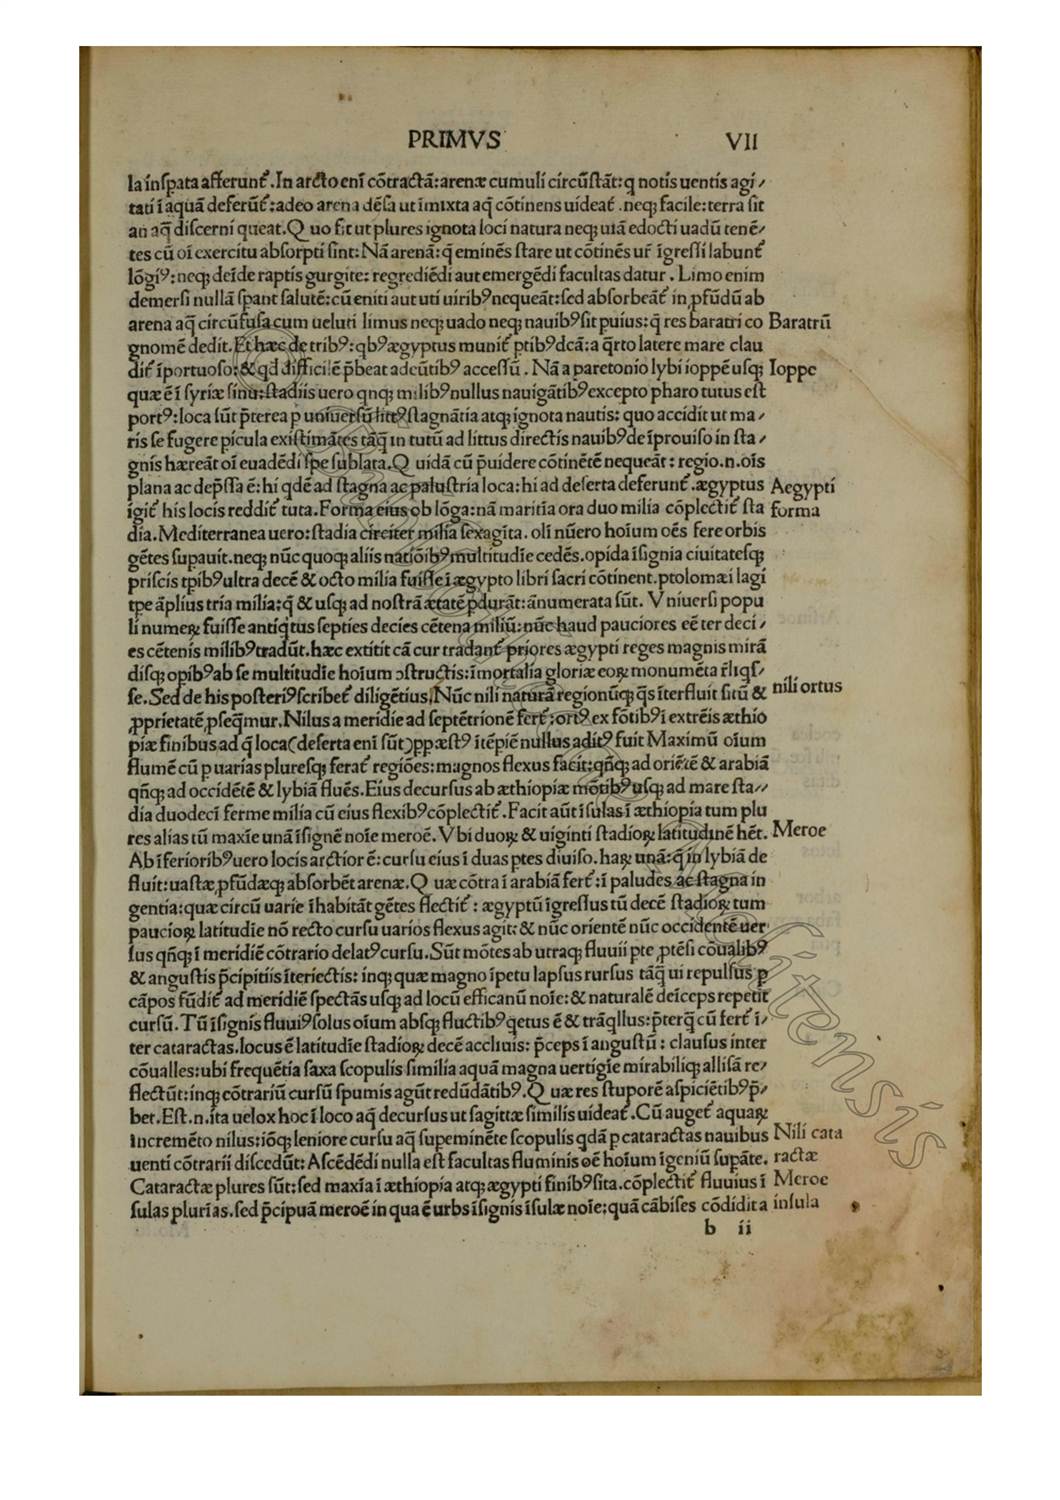 PRIMVS VII
la inspata afferunt᷑. In arcto enī cōtractā: arenæ cumuli circūstāt: q̄ notis uentis agi⸗
tati ī aquā deferūt᷑: adeo arena dēsa ut īmixta aq̄ cōtinens uideat᷑. neq; facile: terra sit
an aq̄ discerni queat. Quo fit ut plures ignota loci natura neq; uiā edocti uadū tenē⸗
tes cū oī exercitu absorpti sint: Nā arenā: q̄ eminēs stare ut cōtinēs ur̄ īgressi labunt᷑
lōgiꝰ: neq; deīde raptis gurgite: regrediēdi aut emergēdi facultas datur. Limo enim
demersi nullā spant salutē: cū eniti aut uti uiribꝰ nequeāt: sed absorbeāt᷑ in ꝓfūdū ab
arena aq̄ circūfusa cum ueluti limus neq; uado neq; nauibꝰ sit puius: q̄ res baratri co Baratrū
gnomē dedit. Et hæc de tribꝰ: qbꝰ ægyptus munit᷑ ptibꝰ dcā: a q̄rto latere mare clau
dit᷑ īportuoso: & qd difficilē p̄beat adeūtibꝰ accessū. Nā a paretonio lybi ioppē usq; Ioppe
quæ ē ī syriæ sinu: stadiis uero qnq; milibꝰ nullus nauigātibꝰ excepto pharo tutus est
portꝰ: loca sūt p̄terea p̱ uniuersū littꝰ stagnātia atq; ignota nautis: quo accidit ut ma⸗
ris se fugere picula existimātes tāq̄ in tutū ad littus directis nauibꝰ de īprouiso in sta⸗
gnis hæreāt oī euadēdi spe sublata. Quidā cū p̄uidere cōtinētē nequeāt: regio .n. oīs
plana ac dep̄ssa ē: hi qdē ad stagna ac palustria loca: hi ad deserta deferunt᷑. ægyptus Aegypti
igit᷑ his locis reddit᷑ tuta. Forma eius ob lōga: nā maritīa ora duo milia cōplectit᷑ sta forma
dia. Mediterranea uero: stadia circiter milia sexagīta. olī nūero hoīum oēs fere orbis
gētes supauit. neq; nūc quoq; aliis natiōibꝰ multitudīe cedēs. opida īsignia ciuitatesq;
priscis tpibꝰ ultra decē & octo milia fuisse ī ægypto libri sacri cōtinent. ptolomæi lagi
tpe āplius tria milia: q̄ & usq; ad nostrā ætatē pdurāt: ānumerata sūt. Vniuersi popu
li numeꝝ fuisse antiq̄tus septies decies cētena miliū: nūc haud pauciores eē ter deci⸗
es cētenis milibꝰ tradūt. hæc extitit cā cur tradant᷑ priores ægypti reges magnis mirā
disq; opibꝰ ab se multitudīe hoīum ꝯstructis: īmortalia gloriæ eoꝝ monumēta rl̄iqs⸗
se. Sed de his posteriꝰ scribet᷑ diligētius. Nūc nili naturā regionūq; q̄s īterfluit sitū & nili ortus
ꝓprietatē ꝓseq̄mur. Nilus a meridie ad septētrionē fert᷑: ortꝰ ex fōtibꝰ ī extrēis æthio
piæ finibus ad q̄ loca (deserta enī sūt) pp æstꝰ ītēpiē nullus aditꝰ fuit Maximū oīum
flumē cū p uarias pluresq; ferat᷑ regiōes: magnos flexus facit: qñq; ad oriētē & arabiā
qñq; ad occidētē & lybiā fluēs. Eius decursus ab æthiopiæ mōtibꝰ usq; ad mare sta⸗
dia duodeci ferme milia cū eius flexibꝰ cōplectit᷑. Facit aūt īsulas ī æthiopia tum plu
res alias tū maxīe unā īsignē noīe meroē. Vbi duoꝝ & uiginti stadioꝝ latitudinē hēt. Meroe
Ab īferioribꝰ uero locis arctior ē: cursu eius ī duas ptes diuiso. haꝝ unā: q̄ in lybiā de
fluit: uastæ ꝓfūdæq; absorbēt arenæ. Quæ cōtra ī arabiā fert᷑: ī paludes ac stagna in
gentia: quæ circū uarie īhabitāt gētes flectit᷑: ægyptū īgressus tū decē stadioꝝ tum
paucioꝝ latitudīe nō recto cursu uarios flexus agit: & nūc orientē nūc occidentē uer
sus qñq; ī meridiē cōtrario delatꝰ cursu. Sūt mōtes ab utraq; fluuii pte ꝓtēsi cōualibꝰ
& angustis p̄cipitiis īteriectis: inq; quæ magno īpetu lapsus rursus tāq̄ ui repulsus p
cāpos fūdit᷑ ad meridiē spectās usq; ad locū efficanū noīe: & naturalē deīceps repetit
cursū. Tū īsignis fluuiꝰ solus oīum absq; fluctibꝰ qetus ē & trāqllus: p̄terq̄ cū fert᷑ ī⸗
ter cataractas. locus ē latitudīe stadioꝝ decē accliuis: p̄ceps ī angustū: clausus inter
cōualles: ubi frequētia saxa scopulis similia aquā magna uertigīe mirabiliq; allisā re⸗
flectūt: inq; cōtrariū cursū spumis agūt redūdātibꝰ. Quæ res stuporē aspiciētibꝰ p̄⸗
bet. Est .n. ita uelox hoc ī loco aq̄ decursus ut sagittæ similis uideat᷑. Cū auget᷑ aquaꝝ
incremēto nilus: iōq; leniore cursu aq̄ supeminēte scopulis qdā p cataractas nauibus Nili cata
uenti cōtrarii discedūt: Ascēdēdi nulla est facultas fluminis oē hoīum īgeniū supāte. ractæ
Cataractæ plures sūt: sed maxīa ī æthiopia atq; ægypti finibꝰ sita. cōplectit᷑ fluuius ī Meroe
sulas plurīas. sed p̄cipuā meroē in qua ē urbs īsignis īsulæ noīe: quā cābises cōdidit a insula
b ii
sitensis